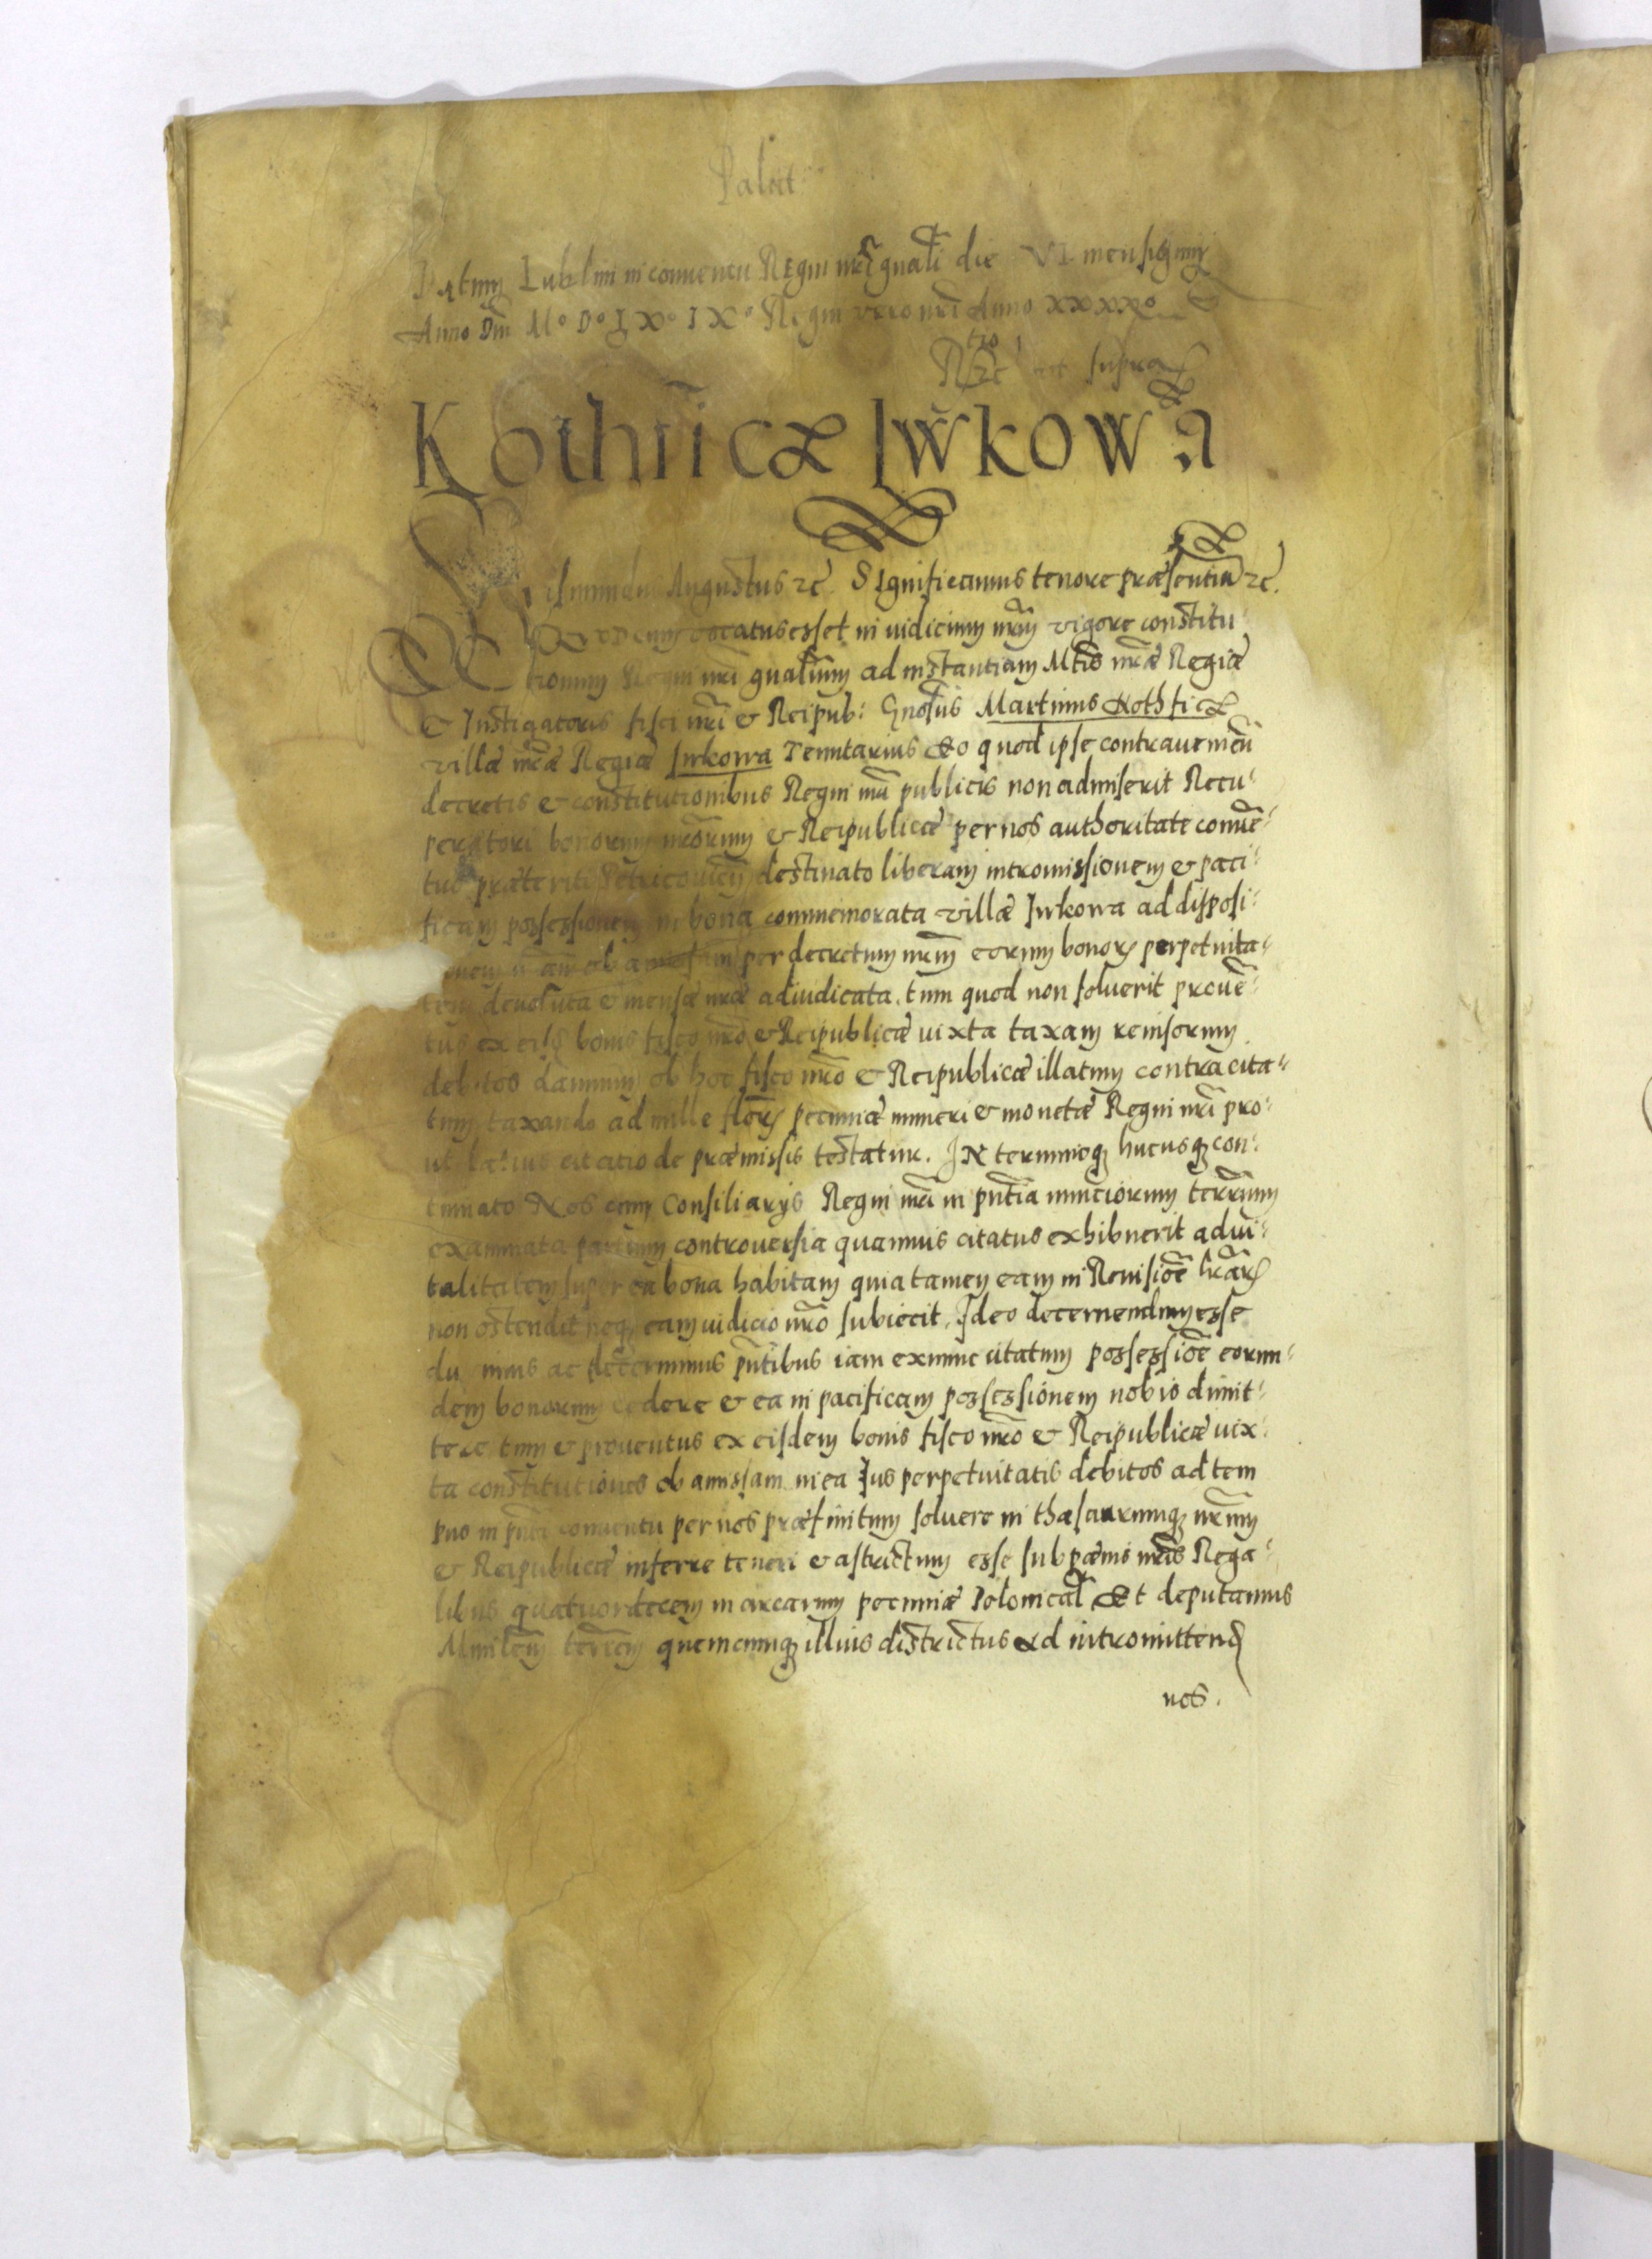 Palat:
Datum Lublini in conventu Regni nr̃i gnãli die VI mensis Junij
Anno Dñi Mº Dº LXº IXº Regni vero nr̃i Anno XXXXº
ut supra
Kothfficz Iwkowa
Sigismundus Augustus zc̃. Significamus tenore præsentiũ zc̃.
Quod cum citatus esset in iudicium nr̃m vigore constitu:
tionum Regni nr̃i gnãlium ad instantiam Mt̃is nr̃æ Regiæ
& Instigatoris fisci nr̃i & Reipub: Gnõsus Martinus Kothficz
villæ nr̃æ Regiæ Iwkowa Tenutarius Eo quod ipse contraveniẽn
decretis & constitutionibus Regni nr̃i publicis non admiserit Recu:
peratori bonorum nr̃orum & Reipublicæ per nos authoritate convẽ:
tus præteriti Petricovien̄ destinato liberam intromissionem & paci:
ficam possessionem in bona commemorata villæ Iwkowa ad disposi:
per decretum nr̃m eorum bonorꝫ perpetuita:
tem devoluta & mensæ nr̃æ adiudicata. tum quod non solverit provẽ:
tus ex eisdꝫ bonis fisco nr̃o & Reipublicæ iuxta taxam revisorum
debitos damnum ob hoc fisco nr̃o & Reipublicæ illatum contra cita:
tum taxando ad mille florꝫ pecuniæ numeri & monetæ Regni nr̃i pro:
ut latius citatio de præmissis testatur. IN terminoqꝫ hucusqꝫ con:
tinuato Nos cum Consiliarijs Regni nr̃i in pñtia nunciorum terr̃arum
examinata partium controversia quamvis citatus exhibuerit advi:
talitatem super ea bona habitam quia tamen eam in Revisiõe lr̃arꝫ
non ostendit neqꝫ eam iudicio nr̃o subiecit. Ideo decernendum esse
duximus ac decernimus pñtibus iam ex nunc citatum possessiõe eorun:
dem bonorum cedere & ea in pacificam possessionem nobis dimit:
tere tum & proventus ex eisdem bonis fisco nr̃o & Reipublicæ iux:
ta constitutiones ob amissam in ea Jus perpetuitatis debitos ad tem
pus in pñti conventu per nos præfinitum solvere in thesaurumqꝫ nr̃um
& Reipublicæ inferre teneri & astrictum esse sub pænis nr̃is Rega:
libus quatuordecem marcarum pecuniæ Polonical̃ Et deputamus
Mmilem̄ terr̃em quemcumqꝫ illius districtus ad intromittendꝫ
nos.